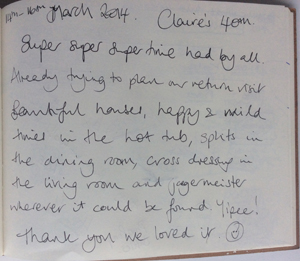 March 2014. Claire's 40th.
Super super super time had by all.
Already trying to plan our return visit
Beautiful houses, happy & wild
times in the hot tub, splits in
the dining room, cross dressing in
the living room and jagermeister
wherever it could be found. Yipee!
Thank you we loved it